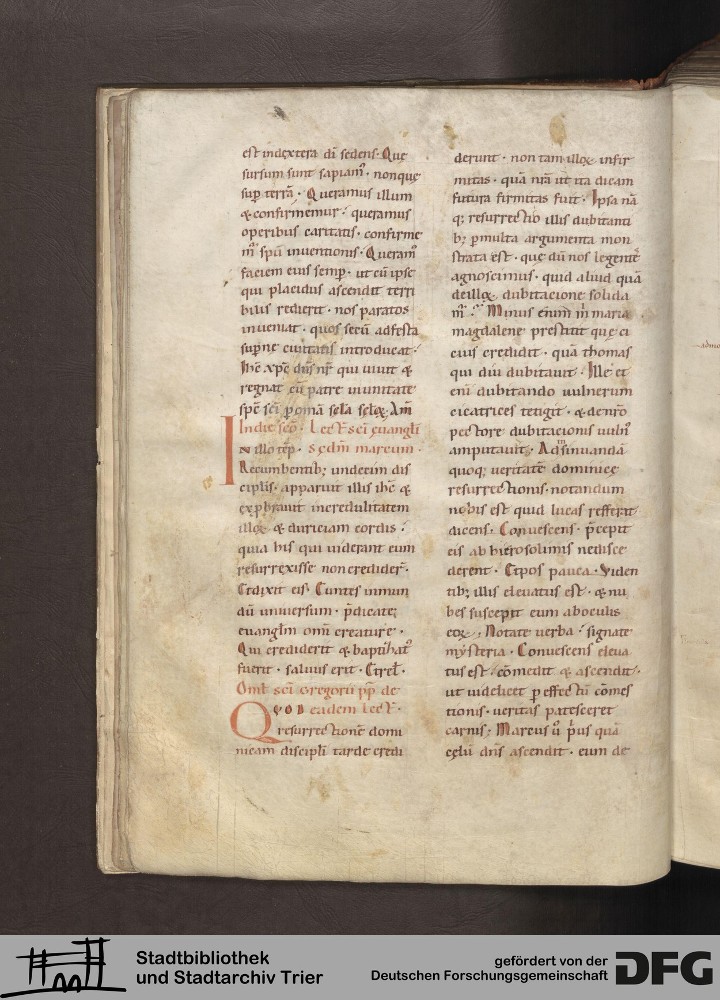 est indextera di sedens. Que
sursum sunt sapiam'. nonque
sup terrā. Queramus illum
& confirmemur. queramus
operibus caritatis. confirme
m' spū inuentionis. Queram'
faciem eius semp. ut cū ipse
qui placidus ascendit terri
bilis redierit. nos paratos
inueniat. quos secū adfesta
supne ciuitatis introducat.
ihc xpc dns nr qui uiuit &
regnat cū patre inunitate
spc sci p omīa scla sclor. Am
In die sco. Lect sci euangli
N illo tēp. scdm marcum.
Recumbentib; undecim dis
ciplis. apparuit illis ihc &
exprbrauit incredulitatem
illor & duriciam cordis.
quia his qui uiderant eum
resurrexisse non credider.
Et dixit eis. Euntes inmun
dū uniuersum. pdicate
euanglm omi creature.
Qui crediderit & baptizat'
fuerit. saluus erit. Et rel.
Oml sci Gregorii pp de
QVOD eadem lect.
resurrectionē domi
nicam discipli tarde credi
derunt. non tam illor infir
mitas. quā nrā ut ita dicam
futura firmitas fuit. Ipsa nā
q; resurrectio illis dubitanti
b; pmulta argumenta mon
strata est. que dū nos legentes
agnoscimus. quid aliud quā
deillor dubitacione solida
m'. Minus enim m maria
magdalene prestitit que ci
cius credidit. quā thomas
qui diu dubitauit. Ille et
enī dubitando uulnerum
cicatrices tetigit. & denro
pectore dubitacionis uuln'
amputauit. Ad insinuandā
quoq; ueritatē dominice
resurrectionis. notandum
nobis est quid lucas refferat
dicens. Conuescens. pcepit
eis ab hierosolimis nedisce
derent. Et pos pauca. Viden
tib; illis eleuatus est. & nu
bes suscepit eum aboculis
eor. Notate uerba. signate
mysteria. Conuescens eleua
tus est. cōmedit & ascendit.
ut uidelicet p effectū cōmes
tionis. ueritas patesceret
carnis; Marcus ū prius quā
celū dns ascendit. eum de
Stadtbibliothek
und Stadtarchiv Trier
gefördert von der
Deutschen Forschungsgemeinschaft
DFG